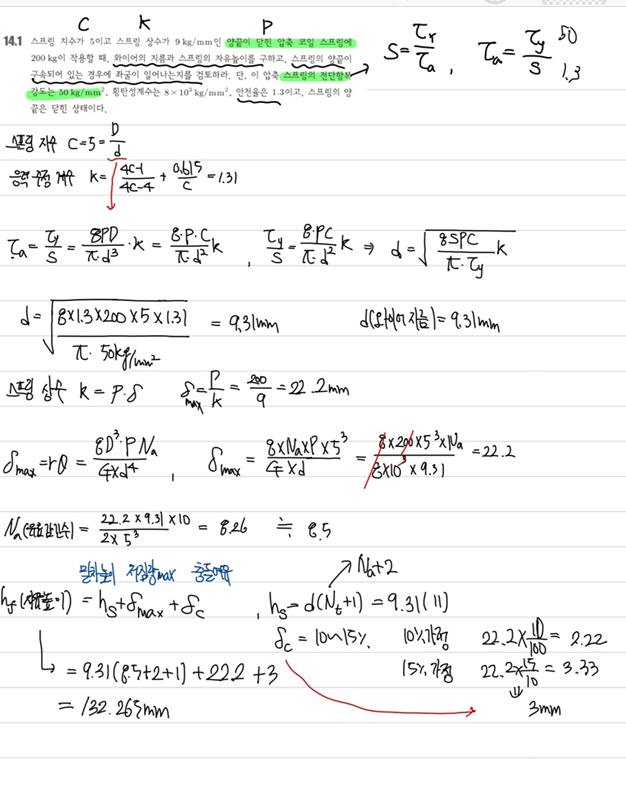 C K P
14.1 스프링 지수가 5이고 스프링 상수가 9 kg/mm인 양끝이 닫힌 압축 코일 스프링에
200 kg이 작용할 때, 와이어의 지름과 스프링의 자유높이를 구하고, 스프링의 양끝이
구속되어 있는 경우에 좌굴이 일어나는지를 검토하라. 단, 이 압축 스프링의 전단항복
강도는 50 kg/mm², 횡탄성계수는 8×10³ kg/mm², 안전율은 1.3이고, 스프링의 양
끝은 닫힌 상태이다.
S = τr/τa , τa = τy/S 50 1.3
스프링 지수 C=5= D/d
응력 수정 계수 k= (4C-1)/(4C-4) + 0.615/C = 1.31
τa = τy/S = 8PD/(π·d³)·k = 8·P·C/(π·d²) k , τy/S = 8·PC/(π·d²) k ⇒ d = √(8SPC/(π·τy) k)
d = √(8×1.3×200×5×1.31/(π·50kg/mm²)) = 9.31mm d(와이어 지름)= 9.31mm
스프링 상수 k = P·δ δmax = P/k = 200/9 = 22.2mm
δmax = rθ = 8D³·PNa/(G×d⁴) , δmax = 8×Na×P×5³/(G×d) = 8×200×5³×Na/(8×10³×9.31) = 22.2
Na(유효감긴수) = 22.2×9.31×10/(2×5³) = 8.26 ≒ 8.5
밀착높이 처짐량max 충돌여유
hf(자유높이) = hs+δmax+δc , hs = d(Nt+1) = 9.31(11) Na+2
δc = 10~15% 10%가정 22.2×10/100 = 2.22
↳ = 9.31(8.5+2+1) + 22.2 + 3 15%가정 22.2×15/10 = 3.33
= 132.265mm 3mm